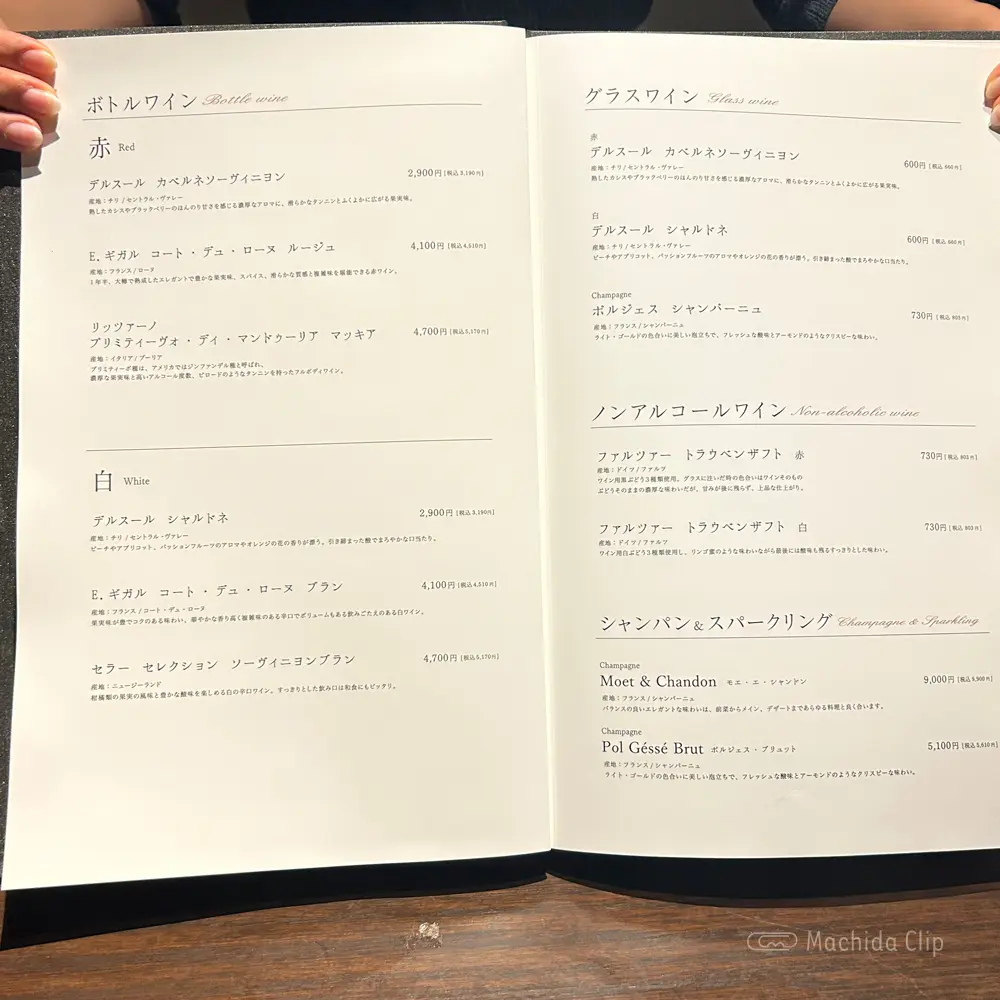 ボトルワイン Bottle wine
赤 Red
デルスール カベルネソーヴィニヨン 2,900円 [税込3,190円]
産地：チリ / セントラル・ヴァレー
熟したカシスやブラックベリーのほんのり甘さを感じる濃厚なアロマに、滑らかなタンニンとふくよかに広がる果実味。
E. ギガル コート・デュ・ローヌ ルージュ 4,100円 [税込4,510円]
産地：フランス / ローヌ
1年半、大樽で熟成したエレガントで豊かな果実味、スパイス、滑らかな質感と複雑味を堪能できる赤ワイン。
リッツァーノ
プリミティーヴォ・ディ・マンドゥーリア マッキア 4,700円 [税込5,170円]
産地：イタリア / プーリア
プリミティーボ種は、アメリカではジンファンデル種と呼ばれ、
濃厚な果実味と高いアルコール度数、ビロードのようなタンニンを持ったフルボディワイン。
白 White
デルスール シャルドネ 2,900円 [税込3,190円]
産地：チリ / セントラル・ヴァレー
ピーチやアプリコット、パッションフルーツのアロマやオレンジの花の香りが漂う。引き締まった酸でまろやかな口当たり。
E. ギガル コート・デュ・ローヌ ブラン 4,100円 [税込4,510円]
産地：フランス / コート・デュ・ローヌ
果実味が豊でコクのある味わい。華やかな香り高く複雑味のある辛口でボリュームもある飲みごたえのある白ワイン。
セラー セレクション ソーヴィニヨンブラン 4,700円 [税込5,170円]
産地：ニュージーランド
柑橘類の果実の風味と豊かな酸味を楽しめる白の辛口ワイン。すっきりとした飲み口は和食にもピッタリ。
グラスワイン Glass wine
赤
デルスール カベルネソーヴィニヨン 600円 [税込 660円]
産地：チリ / セントラル・ヴァレー
熟したカシスやブラックベリーのほんのり甘さを感じる濃厚なアロマに、滑らかなタンニンとふくよかに広がる果実味。
白
デルスール シャルドネ 600円 [税込 660円]
産地：チリ / セントラル・ヴァレー
ピーチやアプリコット、パッションフルーツのアロマやオレンジの花の香りが漂う。引き締まった酸でまろやかな口当たり。
Champagne
ポルジェス シャンパーニュ 730円 [税込 803円]
産地：フランス / シャンパーニュ
ライト・ゴールドの色合いに美しい泡立ちで、フレッシュな酸味とアーモンドのようなクリスピーな味わい。
ノンアルコールワイン Non-alcoholic wine
ファルツァー トラウベンザフト 赤 730円 [税込 803円]
産地：ドイツ / ファルツ
ワイン用黒ぶどう3種類使用。グラスに注いだ時の色合いはワインそのもの
ぶどうそのままの濃厚な味わいだが、甘みが後に残らず、上品な仕上がり。
ファルツァー トラウベンザフト 白 730円 [税込 803円]
産地：ドイツ / ファルツ
ワイン用白ぶどう3種類使用し、リンゴ蜜のような味わいながら最後には酸味も残るすっきりとした味わい。
シャンパン&スパークリング Champagne & Sparkling
Champagne
Moet & Chandon モエ・エ・シャンドン 9,000円 [税込9,900円]
産地：フランス / シャンパーニュ
バランスの良いエレガントな味わいは、前菜からメイン、デザートまであらゆる料理と良く合います。
Champagne
Pol Géssé Brut ポルジェス・ブリュット 5,100円 [税込5,610円]
産地：フランス / シャンパーニュ
ライト・ゴールドの色合いに美しい泡立ちで、フレッシュな酸味とアーモンドのようなクリスピーな味わい。
Machida Clip